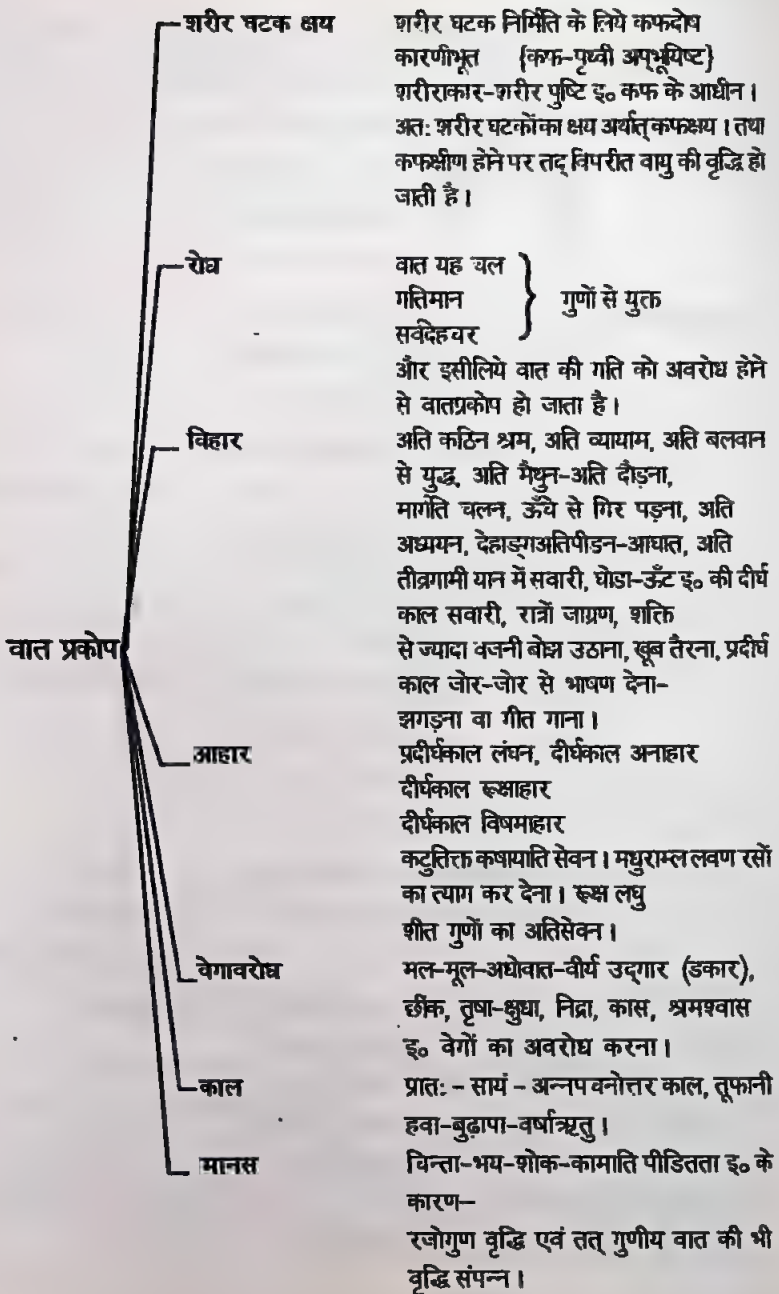 शरीर घटक क्षय
शरीर घटक निर्मिति के लिये कफदोष
कारणीभूत {कफ-पृथ्वी अप्भूयिष्ट}
शरीराकार-शरीर पुष्टि इ० कफ के आधीन।
अत: शरीर घटकों का क्षय अर्थात् कफक्षय। तथा
कफक्षीण होने पर तद् विपरीत वायु की वृद्धि हो
जाती है।
रोध
वात यह चल
गतिमान } गुणों से युक्त
सर्वदेहचर
और इसीलिये वात की गति को अवरोध होने
से वातप्रकोप हो जाता है।
विहार
अति कठिन श्रम, अति व्यायाम, अति बलवान
से युद्ध, अति मैथुन-अति दौड़ना,
मार्गति चलन, ऊँचे से गिर पड़ना, अति
अध्ययन, देहाङ्गअतिपीडन-आघात, अति
तीव्रगामी यान में सवारी, घोडा-ऊँट इ० की दीर्घ
काल सवारी, रात्रौ जाग्रण, शक्ति
वात प्रकोप
से ज्यादा वजनी बोझ उठाना, खूब तैरना, प्रदीर्घ
काल जोर-जोर से भाषण देना-
झगड़ना वा गीत गाना।
आहार
प्रदीर्घकाल लंघन, दीर्घकाल अनाहार
दीर्घकाल रूक्षाहार
दीर्घकाल विषमाहार
कटुतिक्त कषायाति सेवन। मधुराम्ल लवण रसों
का त्याग कर देना। रूक्ष लघु
शीत गुणों का अतिसेवन।
वेगावरोध
मल-मूल-अधोवात-वीर्य उद्‌गार (डकार),
छींक, तृषा-क्षुधा, निद्रा, कास, श्रमश्वास
इ० वेगों का अवरोध करना।
काल
प्रात: - सायं - अन्नपचनोत्तर काल, तूफानी
हवा-बुढ़ापा-वर्षाऋतु।
मानस
चिन्ता-भय-शोक-कामाति पीडितता इ० के
कारण-
रजोगुण वृद्धि एवं तत् गुणीय वात की भी
वृद्धि संपन्न।